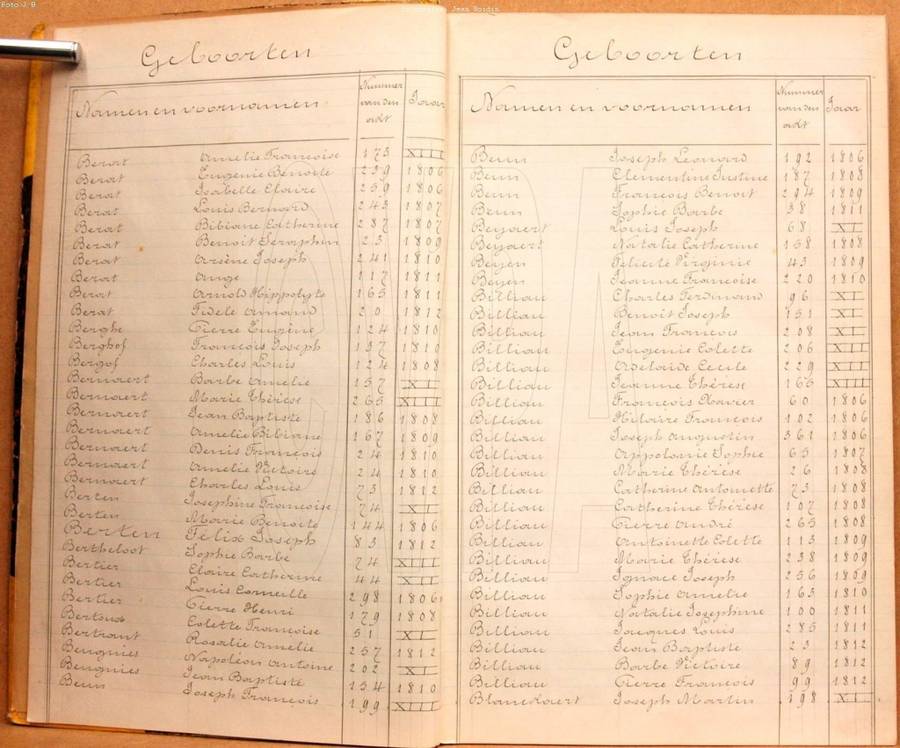 Foto J. B
Jean Bordin
Geboorten
Namen en voornamen Nummer van den acht Jaar
Berat Amelie Francoise 173 XIII
Berat Eugenie Benoite 239 1806
Berat Isabelle Claire 259 1806
Berat Louis Bernard 243 1807
Berat Bibiane Catherine 287 1807
Berat Benoit Seraphin 23 1809
Berat Arsène Joseph 241 1810
Berat Ange 117 1811
Berat Arnold Hippolyte 165 1811
Berat Fidele Armand 20 1812
Berghe Pierre Eugène 124 1810
Berghof Francois Joseph 137 1810
Bergof Charles Louis 124 1808
Bernaert Barbe Amelie 157 XII
Bernaert Marie Thérèse 265 XIII
Bernaert Jean Baptiste 186 1808
Bernaert Amelie Bibiane 167 1809
Bernaert Denis Francois 24 1810
Bernaert Amelie Victoire 24 1810
Bernaert Charles Louis 73 1812
Berten Josephine Francoise 74 XI
Berten Marie Benoite 144 1806
Berten Felix Joseph 83 1812
Bertheloot Sophie Barbe 74 XIII
Bertier Claire Catherine 44 XII
Bertier Louis Corneille 298 1806
Bertier Pierre Henri 179 1808
Colette Francoise 51 XI
Bertrant Rosalie Amelie 257 1812
Beugnies Napoleon Antoine 202 XI
Beugnies Jean Baptiste 134 1810
Beun Joseph Francois 199 XIII
Geboorten
Namen en voornamen Nummer van den acht Jaar
Beun Joseph Leonard 192 1806
Beun Clementine Justine 187 1808
Beun Francois Benoit 294 1809
Beun Sophie Barbe 38 1811
Beyaert Louis Joseph 68 XI
Beyaert Natalie Catherine 158 1808
Beyen Felicité Virginie 43 1809
Beyen Jeanne Francoise 220 1810
Billiau Charles Ferdinand 96 XI
Billiau Benoit Joseph 151 XI
Billiau Jean Francois 208 XI
Billiau Eugenie Colette 206 XII
Billiau Adelaide Cecile 229 XII
Billiau Jeanne Thérèse 166 XIII
Billiau Francois Xavier 60 1806
Billiau Hilaire Francois 102 1806
Billiau Joseph Augustin 361 1806
Billiau Appolonie Sophie 65 1807
Billiau Marie Thérèse 26 1808
Billiau Catherine Antoinette 73 1808
Billiau Catherine Thérèse 107 1808
Billiau Pierre André 265 1808
Billiau Antoinette Colette 113 1809
Billiau Marie Thérèse 238 1809
Billiau Ignace Joseph 256 1809
Billiau Sophie Amelie 163 1810
Billiau Natalie Josephine 100 1811
Billiau Jacques Louis 285 1811
Billiau Jean Baptiste 23 1812
Billiau Barbe Victoire 89 1812
Billiau Pierre Francois 99 1812
Blanckaert Joseph Martin 198 XI